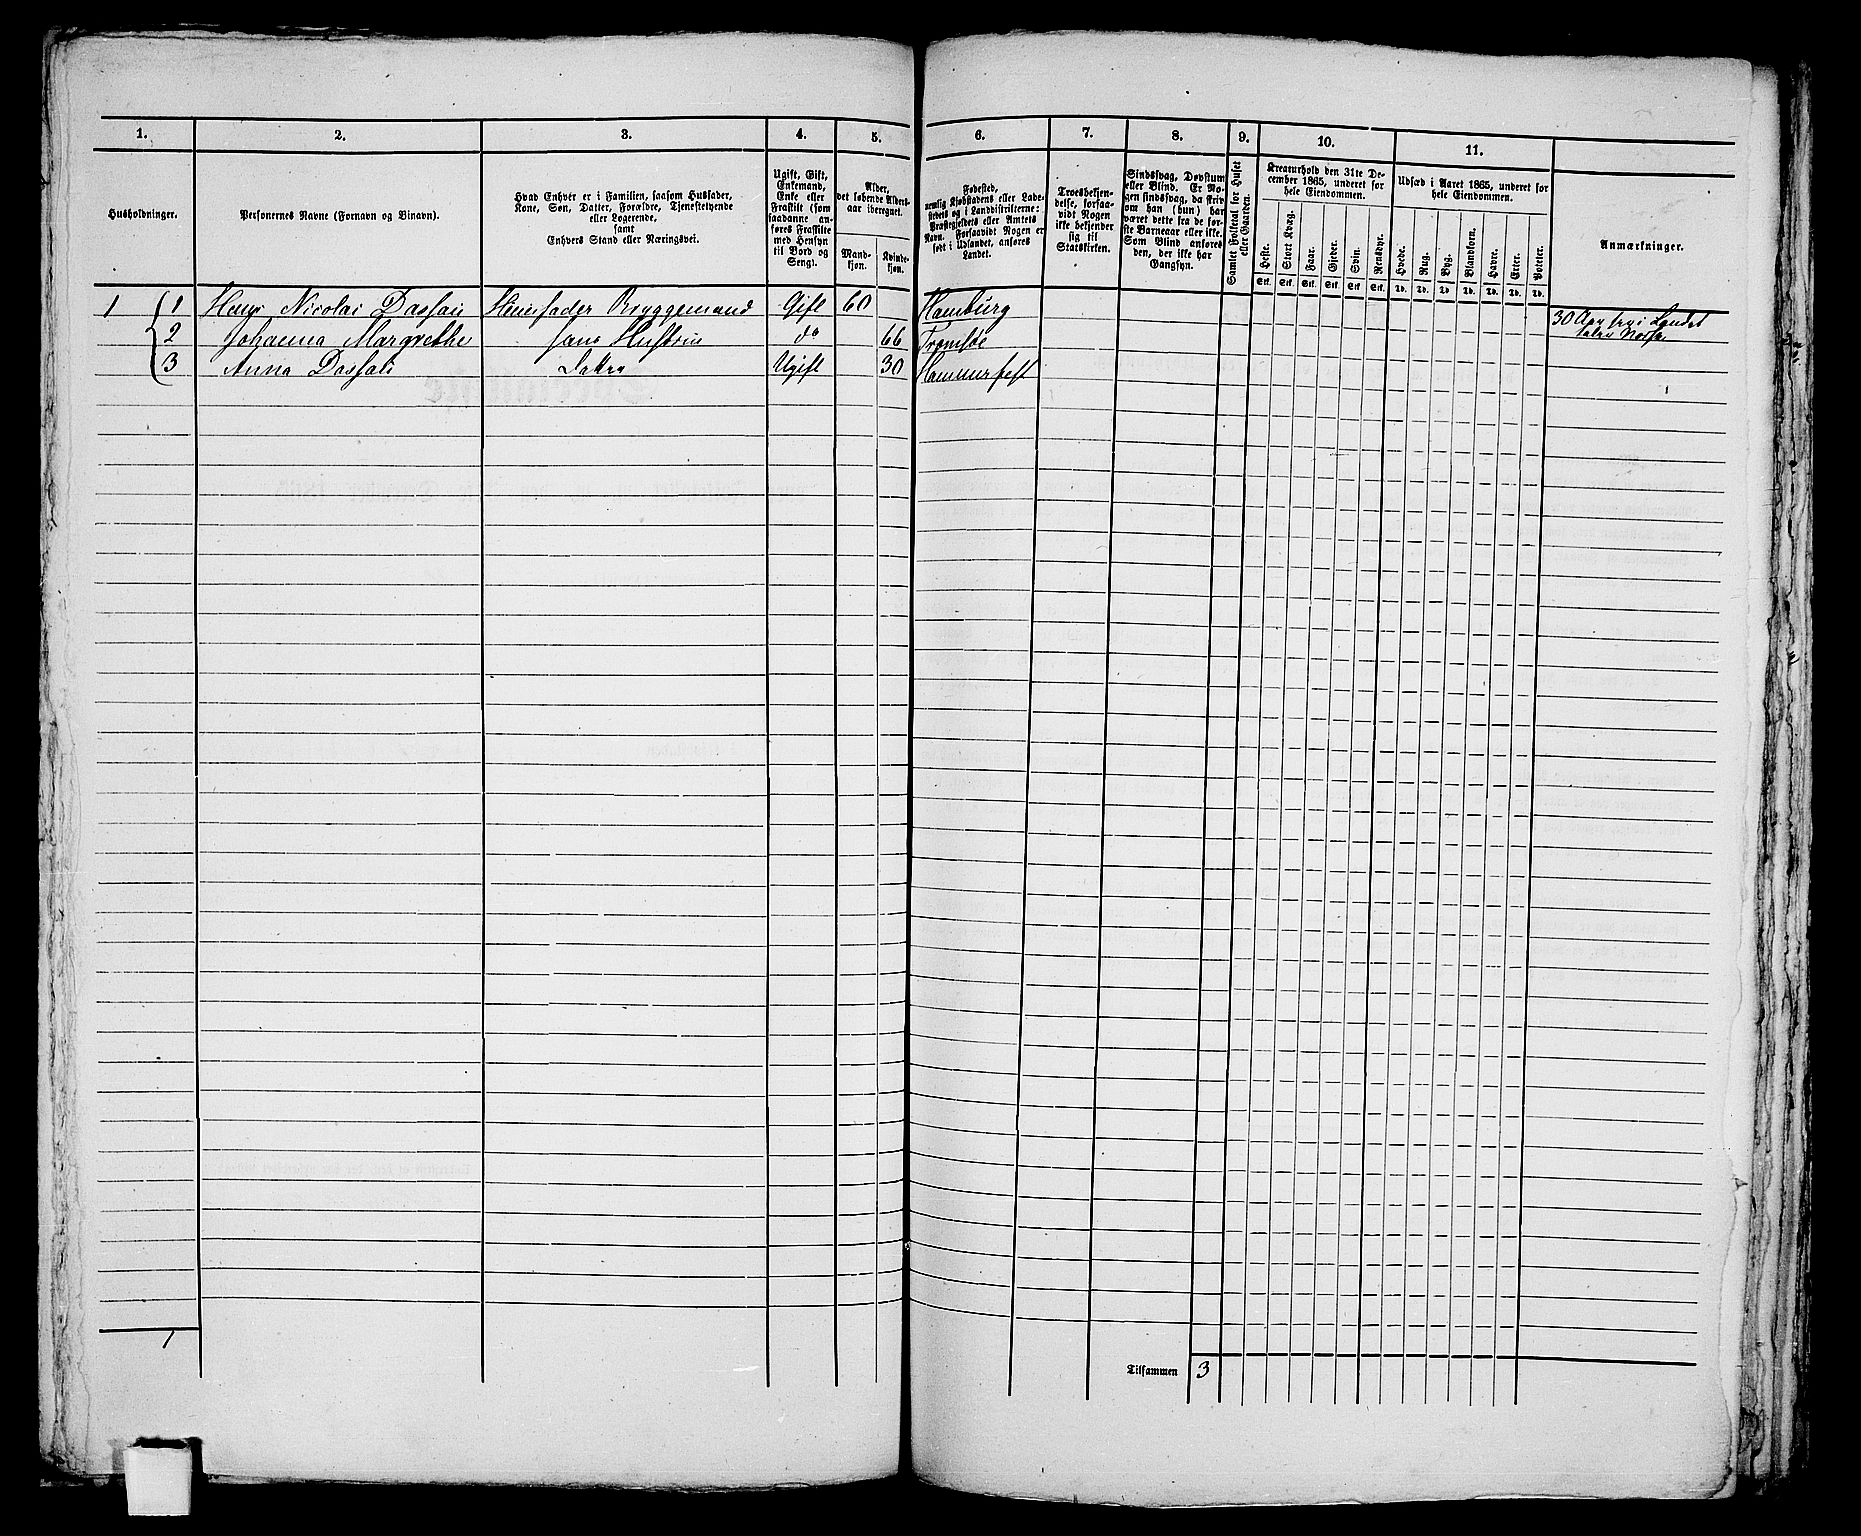 1. 2. 3. 4. 5. 6. 7. 8. 9. 10. 11.
Husholdninger.
Personernes Navne (Fornavn og Binavn).
Hvad Enhver er i Familien, saasom Husfader,
Kone, Søn, Datter, Forældre, Tjenestetyende
eller Logerende,
samt
Enhvers Stand eller Næringsvei.
Ugift, Gift,
Enkemand,
Enke eller
Fraskilt (som
saadanne an-
føres Fraskilte
med Hensyn
til Bord og
Seng).
Alder,
det løbende Alders-
aar iberegnet.
Mand-
kjøn.
Kvinde-
kjøn.
Fødested,
nemlig Kjøbstadens eller Lade-
stedets og i Landdistrikterne:
Præstegjeldets eller Amtets
Navn. Forsaavidt Nogen er
født i Udlandet, anføres
Landet.
Troesbekjen-
delse, forsaa-
vidt Nogen
ikke bekjender
sig til
Statskirken.
Sindssvag, Døvstum
eller Blind. Er No-
gen sindssvag, da skriv
om han (hun) har
været dette fra de før-
ste Barneaar eller ikke.
Som Blind anføres
den, der ikke har
Gangsyn.
Samlet Folketal for Huset
eller Gaarden.
Kreaturhold den 31te De-
cember 1865, underet for
hele Eiendommen.
Heste. Stort Kvæg. Faar. Gjeder. Svin. Rensdyr.
Stk. Stk. Stk. Stk. Stk. Stk.
Udsæd i Aaret 1865, underet for
hele Eiendommen.
Hvede. Rug. Byg. Blandkorn. Havre. Erter. Poteter.
Td. Td. Td. Td. Td. Td. Td.
Anmærkninger.
1 1 Nicolai Gift 60 Hamburg 30
2 Johanna Margrethe do 66 Tromsøe
3 Anna Ugift 30 Hammerfest
1
Tilsammen 3